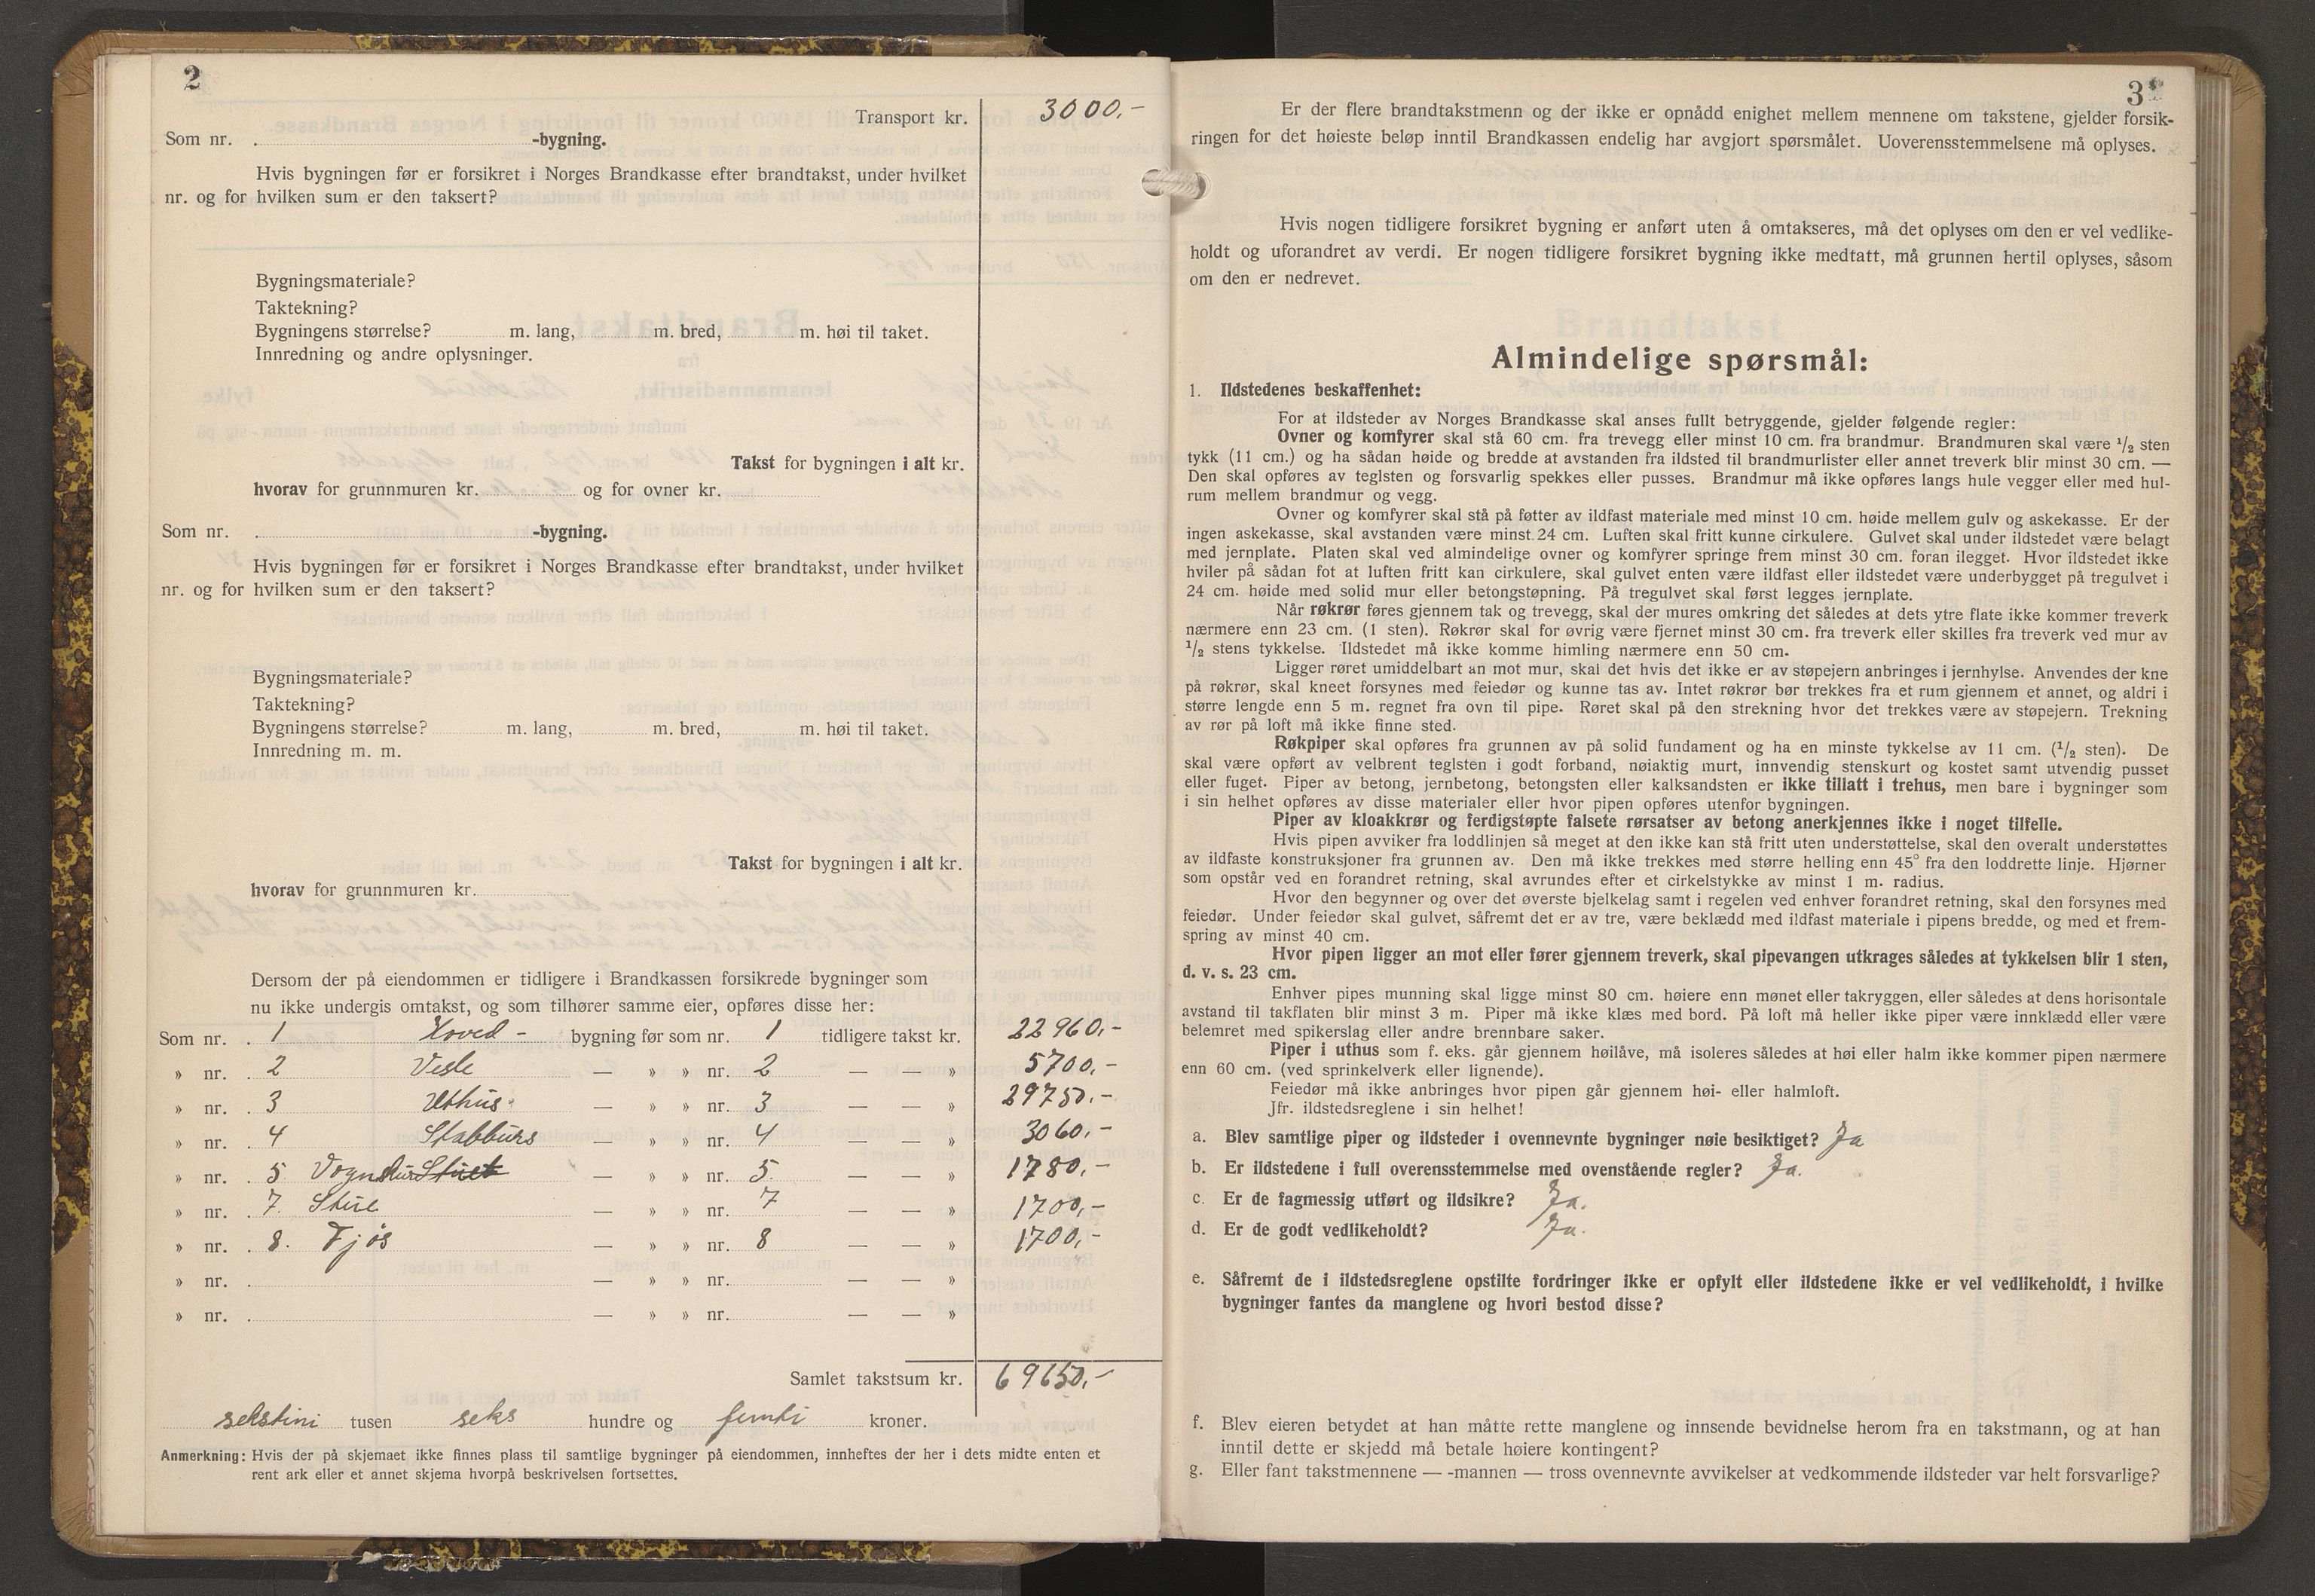 2
Transport kr. 3000,-
Som nr. -bygning.
Hvis bygningen før er forsikret i Norges Brandkasse efter brandtakst, under hvilket
nr. og for hvilken sum er den taksert?
Bygningsmateriale?
Taktekning?
Bygningens størrelse? m. lang, m. bred, m. høi til taket.
Innredning og andre oplysninger.
Takst for bygningen i alt kr.
hvorav for grunnmuren kr. og for ovner kr.
Som nr. -bygning.
Hvis bygningen før er forsikret i Norges Brandkasse efter brandtakst, under hvilket
nr. og for hvilken sum er den taksert?
Bygningsmateriale?
Taktekning?
Bygningens størrelse? m. lang, m. bred, m. høi til taket.
Innredning m. m.
Takst for bygningen i alt kr.
hvorav for grunnmuren kr.
Dersom der på eiendommen er tidligere i Brandkassen forsikrede bygninger som
nu ikke undergis omtakst, og som tilhører samme eier, opføres disse her:
Som nr. 1 Hoved- bygning før som nr. 1 tidligere takst kr. 22960,-
» nr. 2 Vesle — » » nr. 2 — — » 5700,-
» nr. 3 Uthus — » » nr. 3 — — » 29750,-
» nr. 4 Stabburs — » » nr. 4 — — » 3060,-
» nr. 5 Vognskur — » » nr. 5. — — » 1780,-
» nr. 7. Stue — » » nr. 7 — — » 1700,-
» nr. 8. Fjøs — » » nr. 8 — — » 1700,-
» nr. — » » nr. — — »
» nr. — » » nr. — — »
Samlet takstsum kr. 69650,-
sekstini tusen seks hundre og femti kroner.
Anmerkning: Hvis der på skjemaet ikke finnes plass til samtlige bygninger på eiendommen, innheftes der her i dets midte enten et
rent ark eller et annet skjema hvorpå beskrivelsen fortsettes.
3
Er der flere brandtakstmenn og der ikke er opnådd enighet mellem mennene om takstene, gjelder forsik-
ringen for det høieste beløp inntil Brandkassen endelig har avgjort spørsmålet. Uoverensstemmelsene må oplyses.
Hvis nogen tidligere forsikret bygning er anført uten å omtakseres, må det oplyses om den er vel vedlike-
holdt og uforandret av verdi. Er nogen tidligere forsikret bygning ikke medtatt, må grunnen hertil oplyses, såsom
om den er nedrevet.
Almindelige spørsmål:
1. Ildstedenes beskaffenhet:
For at ildsteder av Norges Brandkasse skal anses fullt betryggende, gjelder følgende regler:
Ovner og komfyrer skal stå 60 cm. fra trevegg eller minst 10 cm. fra brandmur. Brandmuren skal være 1/2 sten
tykk (11 cm.) og ha sådan høide og bredde at avstanden fra ildsted til brandmurlister eller annet treverk blir minst 30 cm. —
Den skal opføres av teglsten og forsvarlig spekkes eller pusses. Brandmur må ikke opføres langs hule vegger eller med hul-
rum mellem brandmur og vegg.
Ovner og komfyrer skal stå på føtter av ildfast materiale med minst 10 cm. høide mellem gulv og askekasse. Er der
ingen askekasse, skal avstanden være minst 24 cm. Luften skal fritt kunne cirkulere. Gulvet skal under ildstedet være belagt
med jernplate. Platen skal ved almindelige ovner og komfyrer springe frem minst 30 cm. foran ilegget. Hvor ildstedet ikke
hviler på sådan fot at luften fritt kan cirkulere, skal gulvet enten være ildfast eller ildstedet være underbygget på tregulvet i
24 cm. høide med solid mur eller betongstøpning. På tregulvet skal først legges jernplate.
Når røkrør føres gjennem tak og trevegg, skal der mures omkring det således at dets ytre flate ikke kommer treverk
nærmere enn 23 cm. (1 sten). Røkrør skal for øvrig være fjernet minst 30 cm. fra treverk eller skilles fra treverk ved mur av
1/2 stens tykkelse. Ildstedet må ikke komme himling nærmere enn 50 cm.
Ligger røret umiddelbart an mot mur, skal det hvis det ikke er av støpejern anbringes i jernhylse. Anvendes der kne
på røkrør, skal kneet forsynes med feiedør og kunne tas av. Intet røkrør bør trekkes fra et rum gjennem et annet, og aldri i
større lengde enn 5 m. regnet fra ovn til pipe. Røret skal på den strekning hvor det trekkes være av støpejern. Trekning
av rør på loft må ikke finne sted.
Røkpiper skal opføres fra grunnen av på solid fundament og ha en minste tykkelse av 11 cm. (1/2 sten). De
skal være opført av velbrent teglsten i godt forband, nøiaktig murt, innvendig stenskurt og kostet samt utvendig pusset
eller fuget. Piper av betong, jernbetong, betongsten eller kalksandsten er ikke tillatt i trehus, men bare i bygninger som
i sin helhet opføres av disse materialer eller hvor pipen opføres utenfor bygningen.
Piper av kloakkrør og ferdigstøpte falsete rørsatser av betong anerkjennes ikke i noget tilfelle.
Hvis pipen avviker fra loddlinjen så meget at den ikke kan stå fritt uten understøttelse, skal den overalt understøttes
av ildfaste konstruksjoner fra grunnen av. Den må ikke trekkes med større helling enn 45° fra den loddrette linje. Hjørner
som opstår ved en forandret retning, skal avrundes efter et cirkelstykke av minst 1 m. radius.
Hvor den begynner og over det øverste bjelkelag samt i regelen ved enhver forandret retning, skal den forsynes med
feiedør. Under feiedør skal gulvet, såfremt det er av tre, være beklædd med ildfast materiale i pipens bredde, og med et frem-
spring av minst 40 cm.
Hvor pipen ligger an mot eller fører gjennem treverk, skal pipevangen utkrages således at tykkelsen blir 1 sten,
d. v. s. 23 cm.
Enhver pipes munning skal ligge minst 80 cm. høiere enn mønet eller takryggen, eller således at dens horisontale
avstand til takflaten blir minst 3 m. Piper må ikke klæs med bord. På loft må heller ikke piper være innklædd eller være
belemret med spikerslag eller andre brennbare saker.
Piper i uthus som f. eks. går gjennem høilåve, må isoleres således at høi eller halm ikke kommer pipen nærmere
enn 60 cm. (ved sprinkelverk eller lignende).
Feiedør må ikke anbringes hvor pipen går gjennem høi- eller halmloft.
Jfr. ildstedsreglene i sin helhet!
a. Blev samtlige piper og ildsteder i ovennevnte bygninger nøie besiktiget? Ja
b. Er ildstedene i full overensstemmelse med ovenstående regler? Ja.
c. Er de fagmessig utført og ildsikre? Ja.
d. Er de godt vedlikeholdt? Ja.
e. Såfremt de i ildstedsreglene opstilte fordringer ikke er opfylt eller ildstedene ikke er vel vedlikeholdt, i hvilke
bygninger fantes da manglene og hvori bestod disse?
f. Blev eieren betydet at han måtte rette manglene og innsende bevidnelse herom fra en takstmann, og at han
inntil dette er skjedd må betale høiere kontingent?
g. Eller fant takstmennene — -mannen — tross ovennevnte avvikelser at vedkommende ildsteder var helt forsvarlige?